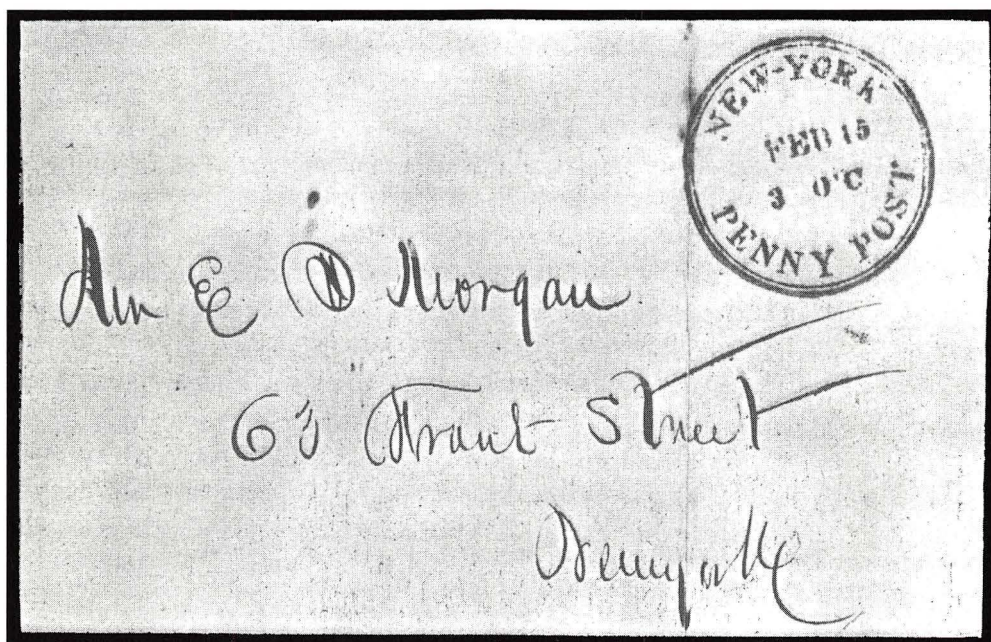 NEW-YORK
FEB 15
3 O'C
PENNY POST.
E D Morgan
63 Front Street
Newyork